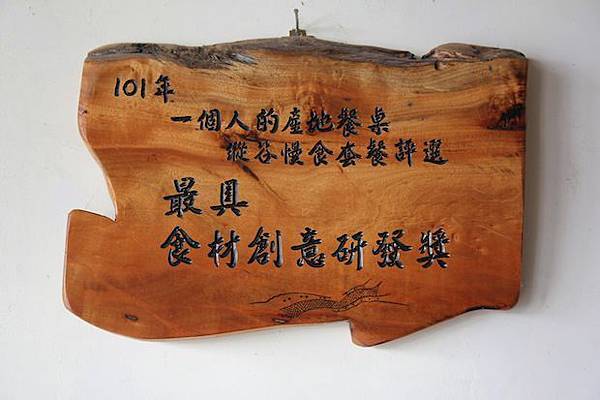 101年
一個人的產地餐桌
縱谷慢食套餐評選
最具
食材創意研發獎